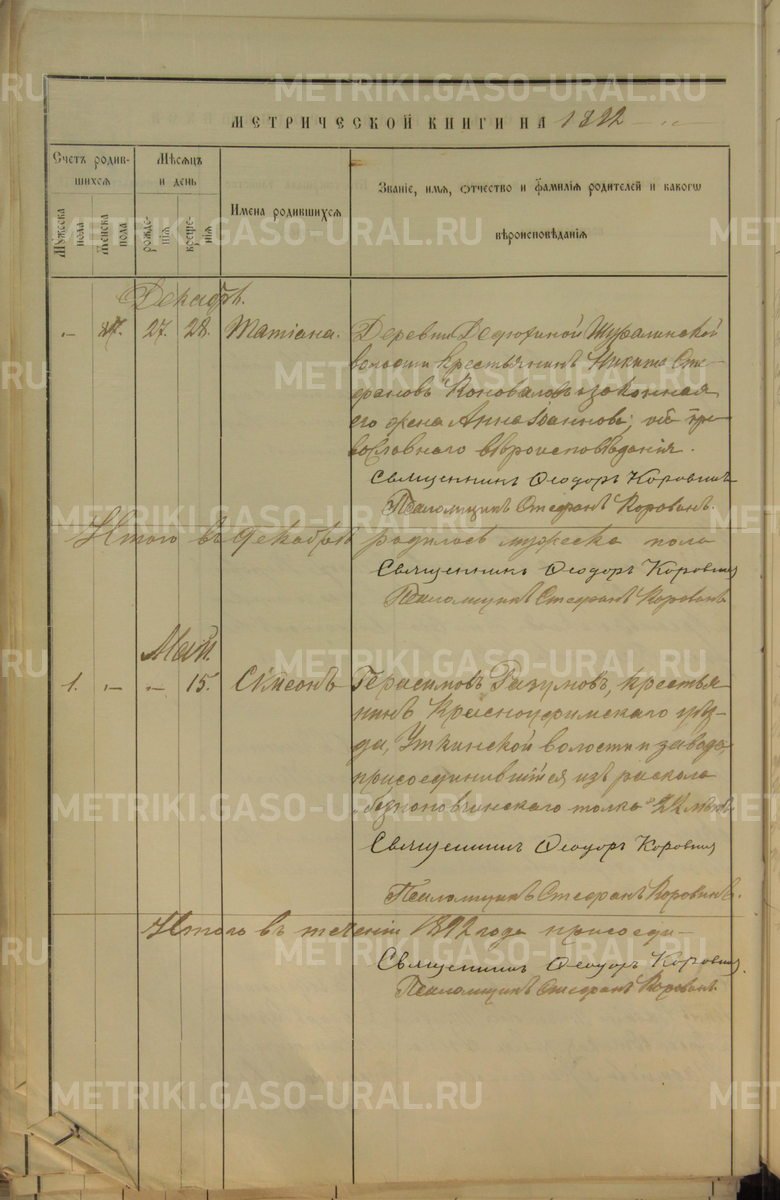 МЕТРИЧЕСКОЙ КНИГИ НА 1892
Счетъ родившихся
Мѣсяцъ и день
Имена родившихся
Званіе, имя, отчество и фамилія родителей и какогѡ вѣроисповѣданія
Мужеска пола
Женска пола
рожденія
крещенія
Декабрь.
27. 28. Татіана. Деревни Дедюхиной Шуралинской
волости крестьянинъ Никита Сте-
фановъ Коноваловъ и законная
его жена Анна Іоаннова; оба пра-
вославнаго вѣроисповѣданія.
Священникъ Ѳеодоръ Коровинъ
Псаломщикъ Стефанъ Коровинъ.
Итого въ декабрѣ родилось мужеска пола
Священникъ Ѳеодоръ Коровинъ
Псаломщикъ Стефанъ Коровинъ
Май.
1. „ „ 15. Сѵмеонъ Герасимовъ Разумовъ, крестья-
нинъ Красноуфимскаго уѣз-
да, Уткинской волости и завода,
присоединившійся изъ раскола
безпоповчинскаго толка 22 лѣтъ
Священникъ Ѳеодоръ Коровинъ
Псаломщикъ Стефанъ Коровинъ.
Итого въ теченіи 1892 года присоеди-
Священникъ Ѳеодоръ Коровинъ.
Псаломщикъ Стефанъ Коровинъ.
METRIKI.GASO-URAL.RU